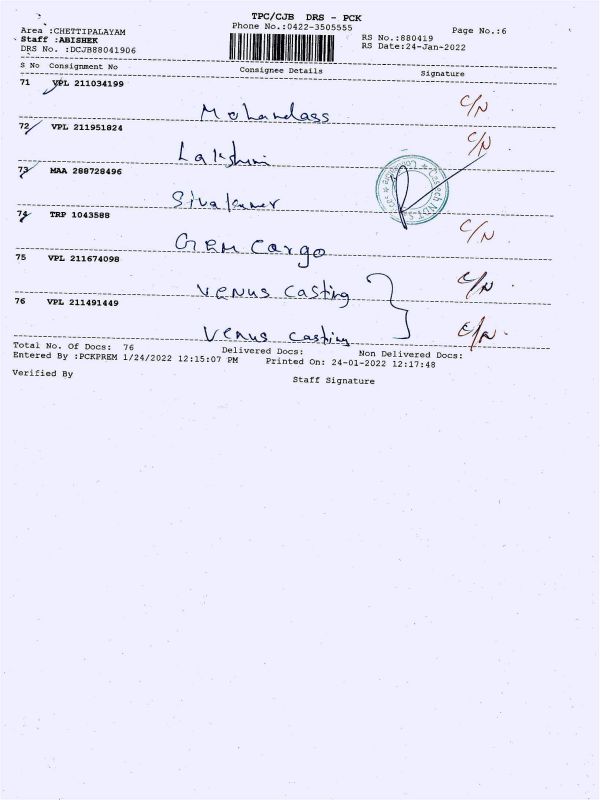 TPC/CJB DRS - PCK
Phone No.:0422-3505555
Page No.:6
Area :CHETTIPALAYAM
Staff :ABISHEK
DRS No. :DCJB88041906
RS No.:880419
RS Date:24-Jan-2022
S No Consignment No Consignee Details Signature
71 VPL 211034199
Mohandass C/N
72 VPL 211951824
Lakshmi C/N
73 MAA 288728496
Sivakumar
74 TRP 1043588
Gem Cargo C/N
75 VPL 211674098
Venus Casting C/N
76 VPL 211491449
Venus casting C/N
Total No. Of Docs: 76 Delivered Docs: Non Delivered Docs:
Entered By :PCKPREM 1/24/2022 12:15:07 PM Printed On: 24-01-2022 12:17:48
Verified By Staff Signature